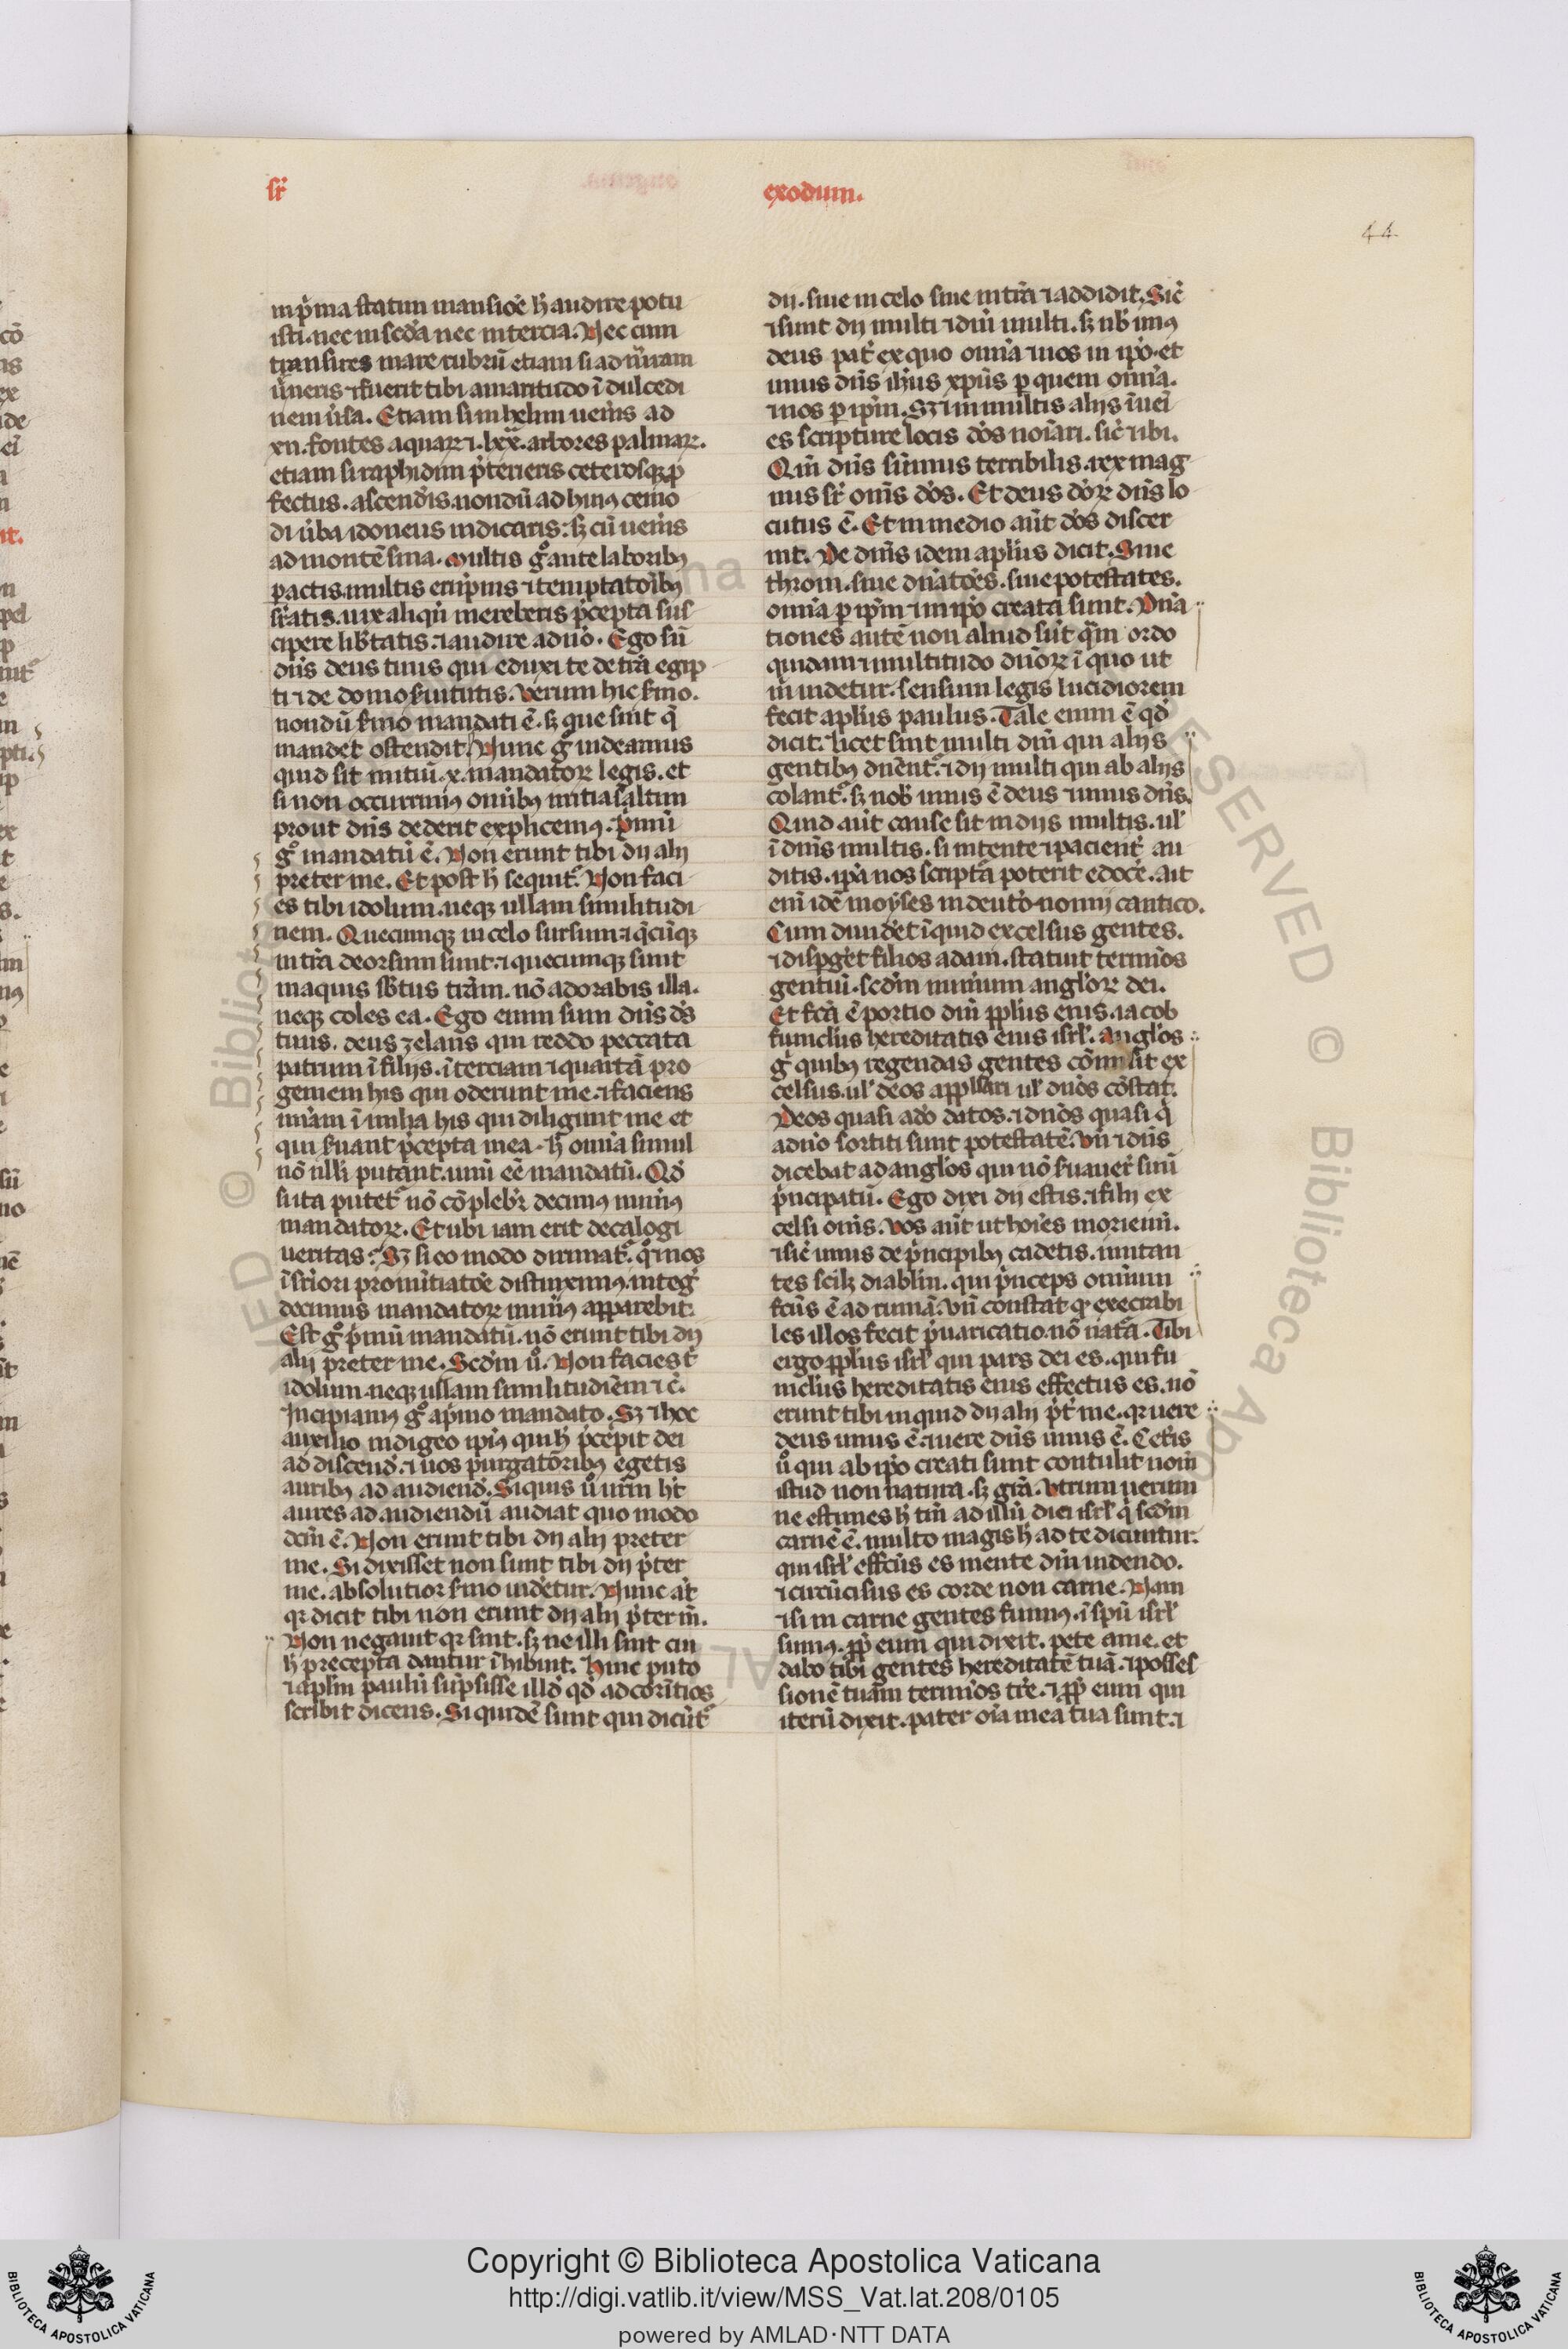 sr̄
exodum.
44
in p̄ma statim mansiōe h̄ audire potu
isti. nec in scd̄a nec in tercia. Nec cum
transires mare rubrū etiam si ad mirram
ūneris ⁊ fuerit tibi amaritudo ī dulcedi
nem ūsa. Etiam si in helim uenīs ad
xii. fontes aquaꝝ ⁊ .lxx. arbores palmaꝝ.
etiam si raphidim p̄terieris ceterosqꝫ ꝓ
fectus. ascend̄is. nondū ad huiꝰ cemo
di ūba idoneus iudicaris: sꝫ cū uenīs
ad montē sina. Multis gͦ ante laboribꝰ
pactis. multis erūpnis ⁊ temptatōibꝰ
sr̄atis. uix aliqn̄ mereberis p̄cepta sus
cipere lib̄tatis. ⁊ audire a dn̄o. Ego sū
dn̄s deus tuus qui eduxi te de tr̄a egip
ti ⁊ de domo s̄uitutis. Verum hic s̄mo.
nondū s̄mo mandati ē. sꝫ que sint q̄
mandet ostendit. Nunc gͦ uideamus
quid sit initiū .x. mandatoꝝ legis. et
si non occurrimꝰ omībꝰ initia saltim
prout dn̄s dederit explicemꝰ. Pͥmū
gͦ mandatū ē. Non erunt tibi dij alij
preter me. Et post h̄ sequitᷣ. Non faci
es tibi idolum. neqꝫ ullam similitudi
nem. Quecumqꝫ in celo sursum ⁊ q̄cūqꝫ
in tr̄a deorsum sunt. ⁊ quecumqꝫ sunt
in aquis sb̄tus tr̄am. nō adorabis illa.
neqꝫ coles ea. Ego enim sum dn̄s d̄s
tuus. deus zelans qui reddo peccata
patrum ī filijs. ī terciam ⁊ quartā pro
geniem his qui oderunt me. ⁊ faciens
mīam ī milia his qui diligunt me et
qui s̄uant p̄cepta mea. h̄ omīa simul
nō̄ulli putant. unū eē mandatū. Qd̄
si ita putetᷣ nō cōplebr̄ decimꝰ num̄ꝰ
mandatoꝝ. Et ubi iam erit decalogi
ueritas? Sꝫ si eo modo dirimatᷣ. qͦ ⁊ nos
ī sr̄iori pronūtiatōe distinximꝰ. inteḡ
decimus mandatoꝝ num̄ꝰ apparebit.
Est gͦ p̄mū mandatū. nō erunt tibi dij
alij preter me. Scd̄m uͦ. Non facies t̄
idolum. neqꝫ ullam similitudiēm ⁊ c̄.
Incipiamꝰ gͦ a p̄mo mandato. Sꝫ ⁊ hoc
auxilio indigeo ipīꝰ qui h̄ p̄cepit dei
ad discend̄. ⁊ uos p̄urgatōribꝰ egetis
auribꝰ ad audiend̄. Siquis uͦ ur̄m h̄t
aures ad audiendū audiat quo modo
dc̄m ē. Non erunt tibi dij alij preter
me. Si dixisset non sunt tibi dij p̄ter
me. absolutior s̄mo uidetur. Nunc aūt
qꝛ dicit tibi non erunt dij alij p̄ter m̄.
Non negauit qꝛ sint. sꝫ ne illi sint cui
h̄ precepta dantur īhibuit. Hinc puto
⁊ apl̄m paulū sūpsisse illd̄ qd̄ ad corītios
scribit dicens. Si quidē sunt qui dicūtᷣ
dij. siue in celo siue in tr̄a ⁊ addidit. Sic̄
⁊ sunt dij multi ⁊ dn̄i multi. sꝫ nb̄ unꝰ
deus pat̄ ex quo omīa ⁊ nos in ipō. et
unus dn̄s ih̄us xp̄us ꝑ quem omīa.
⁊ nos ꝑ ip̄m. Sꝫ ⁊ in multis alijs īuēi
es scripture locis d̄os noīari. sic̄ ⁊ ibi.
Qm̄ dn̄s sūmus terribilis. rex mag
nus sr̄ omīs d̄os. Et deus d̄oꝝ dn̄s lo
cutus ē. Et in medio aūt d̄os discer
nit. De dn̄is idem apl̄us dicit. Siue
throni. siue dn̄atōēs. siue potestates.
omīa ꝑ ip̄m ⁊ in ip̄o creata sunt. Dn̄a
tiones autē non aliud sūt qͣm ordo
quidam ⁊ multitudo dn̄oꝝ ī quo ut
m̄ uidetur. sensum legis lucidiorem
fecit apl̄us paulus. Tale enim ē qd̄
dicit. licet sint multi dn̄i qui alijs
gentibꝰ dn̄entᷣ. ⁊ dij multi qui ab alijs
colantᷣ. sꝫ nob̄ unus ē deus ⁊ unus dn̄s.
Quid aūt cause sit in dijs multis. ul̄
ī dn̄is multis. si intente ⁊ pacient̄ au
ditis. ip̄a nos scriptͣa poterit edoc̄e. Ait
eni idē moyses in deut̄onomij cantico.
Cum diuid̄et īquid excelsus gentes.
⁊ dispḡet filios adam. statuit termīos
gentiū. scd̄m num̄um angl̄oꝝ dei.
Et fc̄a ē portio dn̄i ppl̄us eius. iacob
funicl̄us hereditatis eius isrl̄. Angl̄os
gͦ quibꝰ regendas gentes cōmisit ex
celsus. ul̄ deos appellari ul̄ dn̄os cōstat.
Deos quasi a d̄o datos. ⁊ dn̄os quasi q̄
a dn̄o sortiti sunt potestatē. Vn̄ ⁊ dn̄s
dicebat ad angl̄os qui nō s̄uauer̄ suū
p̄ncipatū. Ego dixi dij estis. ⁊ filij ex
celsi om̄s. Vos aūt ut hoīes moriemī.
⁊ sic̄ unus de p̄ncipibꝰ cadetis. imitan
tes scilꝫ diabl̄m. qui p̄nceps omīum
fc̄us ē ad ruinā. Vn̄ constat qꝫ execrabi
les illos fecit p̄uaricatio. nō natͣa. Tibi
ergo ppl̄us isrl̄ qui pars dei es. qui fu
nicl̄us hereditatis eius effectus es. nō
erunt tibi inquid dij alij p̄t̄ me. qꝛ uere
deus unus ē. ⁊ uere dn̄s unus ē. Cet̄is
uͦ qui ab ip̄o creati sunt contulit nom̄
istud non natura. sꝫ gr̄a. Vtrum uerum
ne estimes h̄ tm̄ ad illū dici isrl̄ q̄ scd̄m
carnē ē. multo magis h̄ ad te dicuntur.
qui isrl̄ effc̄us es mente dm̄ uidendo.
⁊ circūcisus es corde non carne. Nam
⁊ si in carne gentes sumꝰ. ī spū isrl̄
sumꝰ. ꝓp̄ eum qui dixit. pete a me. et
dabo tibi gentes hereditatē tuā. ⁊ posses
sionē tuam termīos tr̄e. ⁊ ꝓp̄ eum qui
iterū dixit. pater oīa mea tua sunt. ⁊
Copyright © Biblioteca Apostolica Vaticana
http://digi.vatlib.it/view/MSS_Vat.lat.208/0105
powered by AMLAD·NTT DATA